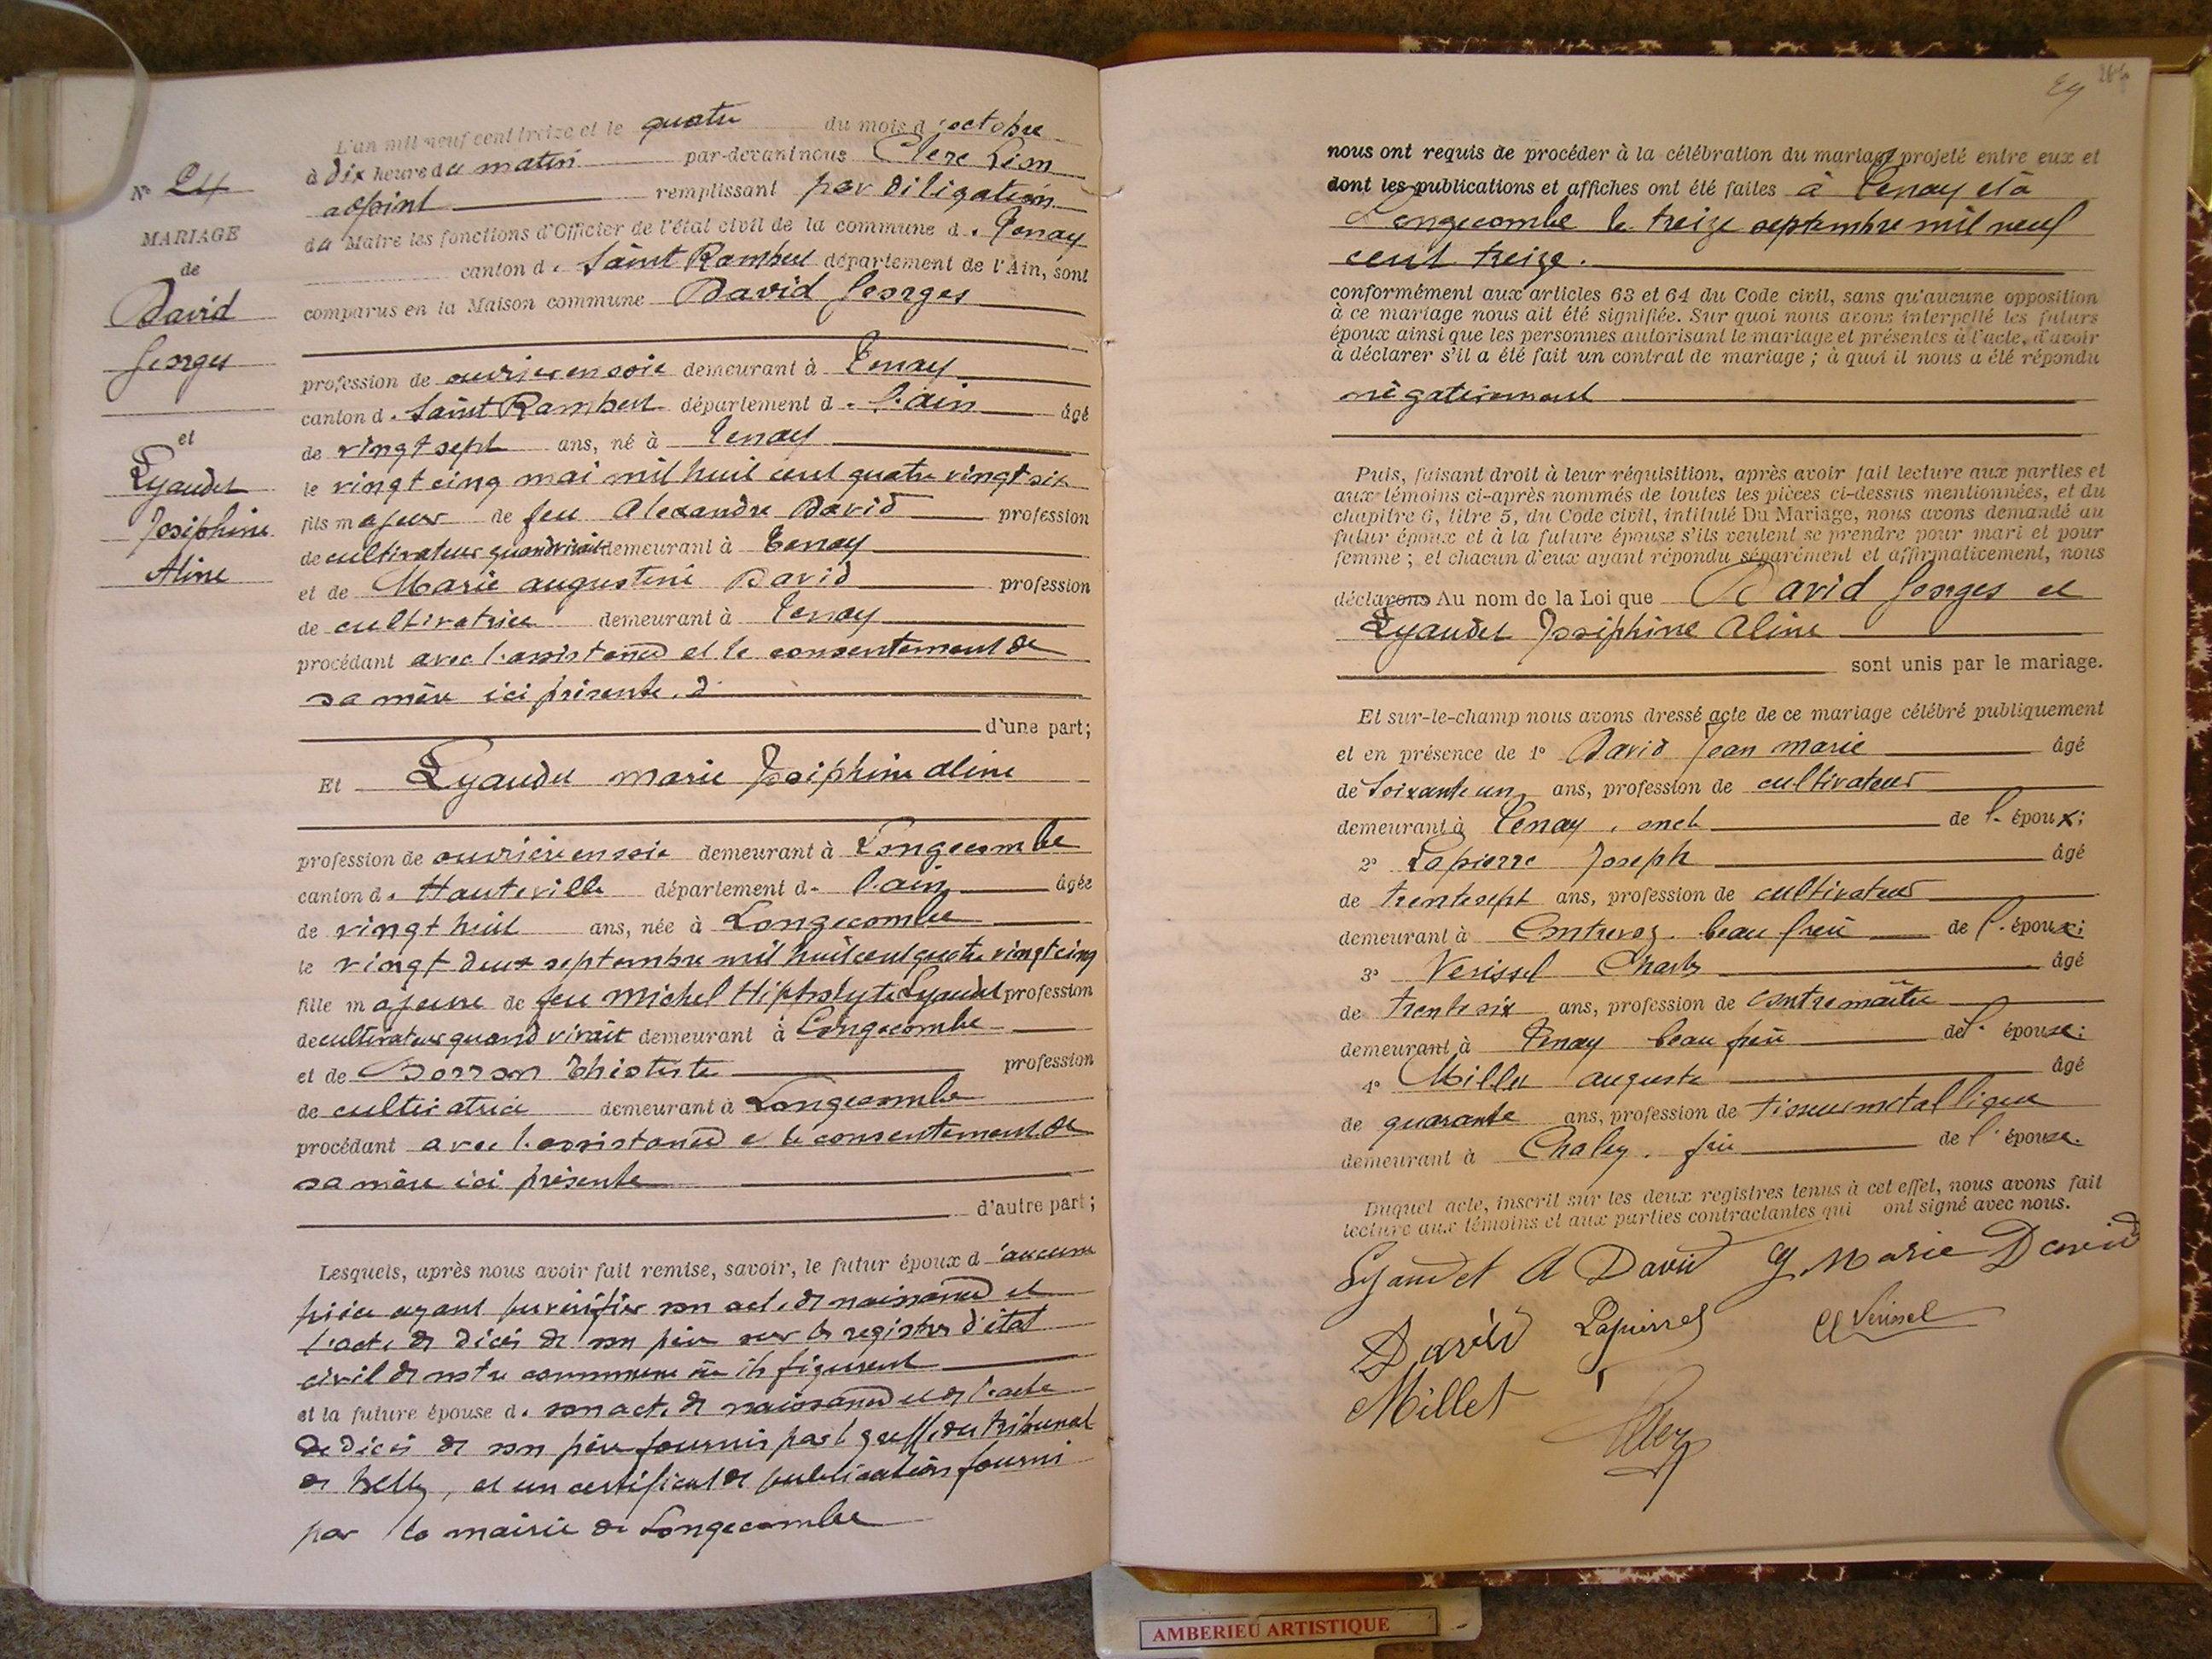 L'an mil neuf cent treize et le quatre du mois d'octobre
à dix heure du matin par-devant nous Clerc Léon
adjoint remplissant par délégation
du Maire les fonctions d'Officier de l'état civil de la commune de Tenay
canton de Saint Rambert département de l'Ain, sont
comparus en la Maison commune David Georges
N° 24
MARIAGE
de
David
Georges
et
Lyaudet
Joséphine
Aline
profession de ouvrier en soie demeurant à Tenay
canton de Saint Rambert département de l'ain âgé
de vingt sept ans, né à Tenay
le vingt cinq mai mil huit cent quatre vingt six
fils majeur de feu Alexandre David profession
de cultivateur quand vivait demeurant à Tenay
et de Marie augustine David profession
de cultivatrice demeurant à Tenay
procédant avec l'assistance et le consentement de
sa mère ici présente. d
d'une part;
Et Lyaudet marie Joséphine aline
profession de ouvrière en soie demeurant à Longecombe
canton de Hauteville département de l'ain âgée
de vingt huit ans, née à Longecombe
le vingt deux septembre mil huit cent quatre vingt cinq
fille majeure de feu Michel Hippolyte Lyaudet profession
de cultivateur quand vivait demeurant à Longecombe
et de Borron Thististe profession
de cultivatrice demeurant à Longecombe
procédant avec l'assistance et le consentement de
sa mère ici présente
d'autre part;
Lesquels, après nous avoir fait remise, savoir, le futur époux d'aucune
pièce ayant pu vérifier son acte de naissance et
l'acte de décès de son père sur les registres d'état
civil de notre commune où ils figurent
et la future épouse de son acte de naissance et de l'acte
de décès de son père fournis par le greffe du tribunal
de Belley, et un certificat de publication fourni
par la mairie de Longecombe
24
nous ont requis de procéder à la célébration du mariage projeté entre eux et
dont les publications et affiches ont été faites à Tenay et à
Longecombe le treize septembre mil neuf
cent treize.
conformément aux articles 63 et 64 du Code civil, sans qu'aucune opposition
à ce mariage nous ait été signifiée. Sur quoi nous avons interpellé les futurs
époux ainsi que les personnes autorisant le mariage et présentes à l'acte, d'avoir
à déclarer s'il a été fait un contrat de mariage ; à quoi il nous a été répondu
négativement
Puis, faisant droit à leur réquisition, après avoir fait lecture aux parties et
aux témoins ci-après nommés de toutes les pièces ci-dessus mentionnées, et du
chapitre 6, titre 5, du Code civil, intitulé Du Mariage, nous avons demandé au
futur époux et à la future épouse s'ils veulent se prendre pour mari et pour
femme ; et chacun d'eux ayant répondu séparément et affirmativement, nous
déclarons Au nom de la Loi que David Georges et
Lyaudet Joséphine Aline
sont unis par le mariage.
Et sur-le-champ nous avons dressé acte de ce mariage célébré publiquement
et en présence de 1° David Jean marie âgé
de soixante un ans, profession de cultivateur
demeurant à Tenay, oncle de l'époux;
2° Lapierre Joseph âgé
de trente sept ans, profession de cultivateur
demeurant à Contrevoz. beau frère de l'époux;
3° Verissel Charles âgé
de trente six ans, profession de contremaître
demeurant à Tenay beau frère de l'épouse;
4° Millet auguste âgé
de quarante ans, profession de tisseur métallique
demeurant à Chaley. de l'épouse.
Duquel acte, inscrit sur les deux registres tenus à cet effet, nous avons fait
lecture aux témoins et aux parties contractantes qui ont signé avec nous.
Lyaudet A David G Marie David
David Lapierre C Verissel
Millet
AMBERIEU ARTISTIQUE